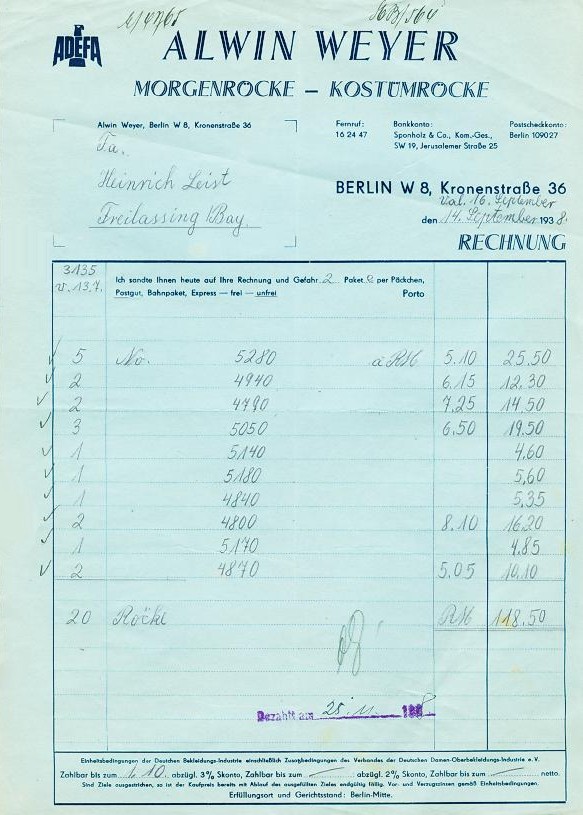 ADEFA
ALWIN WEYER
MORGENRÖCKE – KOSTÜMRÖCKE
Alwin Weyer, Berlin W 8, Kronenstraße 36
Fa.
Heinrich Leist
Freilassing i/Bay.
Fernruf: Bankkonto: Postscheckkonto:
16 24 47 Sponholz & Co., Kom.-Ges., Berlin 109027
SW 19, Jerusalemer Straße 25
BERLIN W 8, Kronenstraße 36
Val. 16. September
den 14. September 1938.
RECHNUNG
3135
v. 13.7.
Ich sandte Ihnen heute auf Ihre Rechnung und Gefahr 2 Paket e per Päckchen,
Postgut, Bahnpaket, Express — frei — unfrei Porto
5 No. 5280 a RM 5.10 25.50
2 4940 6.15 12.30
2 4790 7.25 14.50
3 5050 6.50 19.50
1 5140 4.60
1 5180 5.60
1 4840 5.35
2 4800 8.10 16.20
1 5170 4.85
2 4870 5.05 10.10
20 Röcke RM 118.50
Bezahlt am 25. 11. 193 8
Einheitsbedingungen der Deutschen Bekleidungs-Industrie einschließlich Zusatzbedingungen des Verbandes der Deutschen Damen-Oberbekleidungs-Industrie e. V.
Zahlbar bis zum 1. 10. abzügl. 3% Skonto, Zahlbar bis zum — abzügl. 2% Skonto, Zahlbar bis zum — netto.
Sind Ziele ausgestrichen, so ist der Kaufpreis bereits mit Ablauf des ausgefüllten Zieles endgültig fällig. Vor- und Verzugszinsen gemäß Einheitsbedingungen.
Erfüllungsort und Gerichtsstand: Berlin-Mitte.